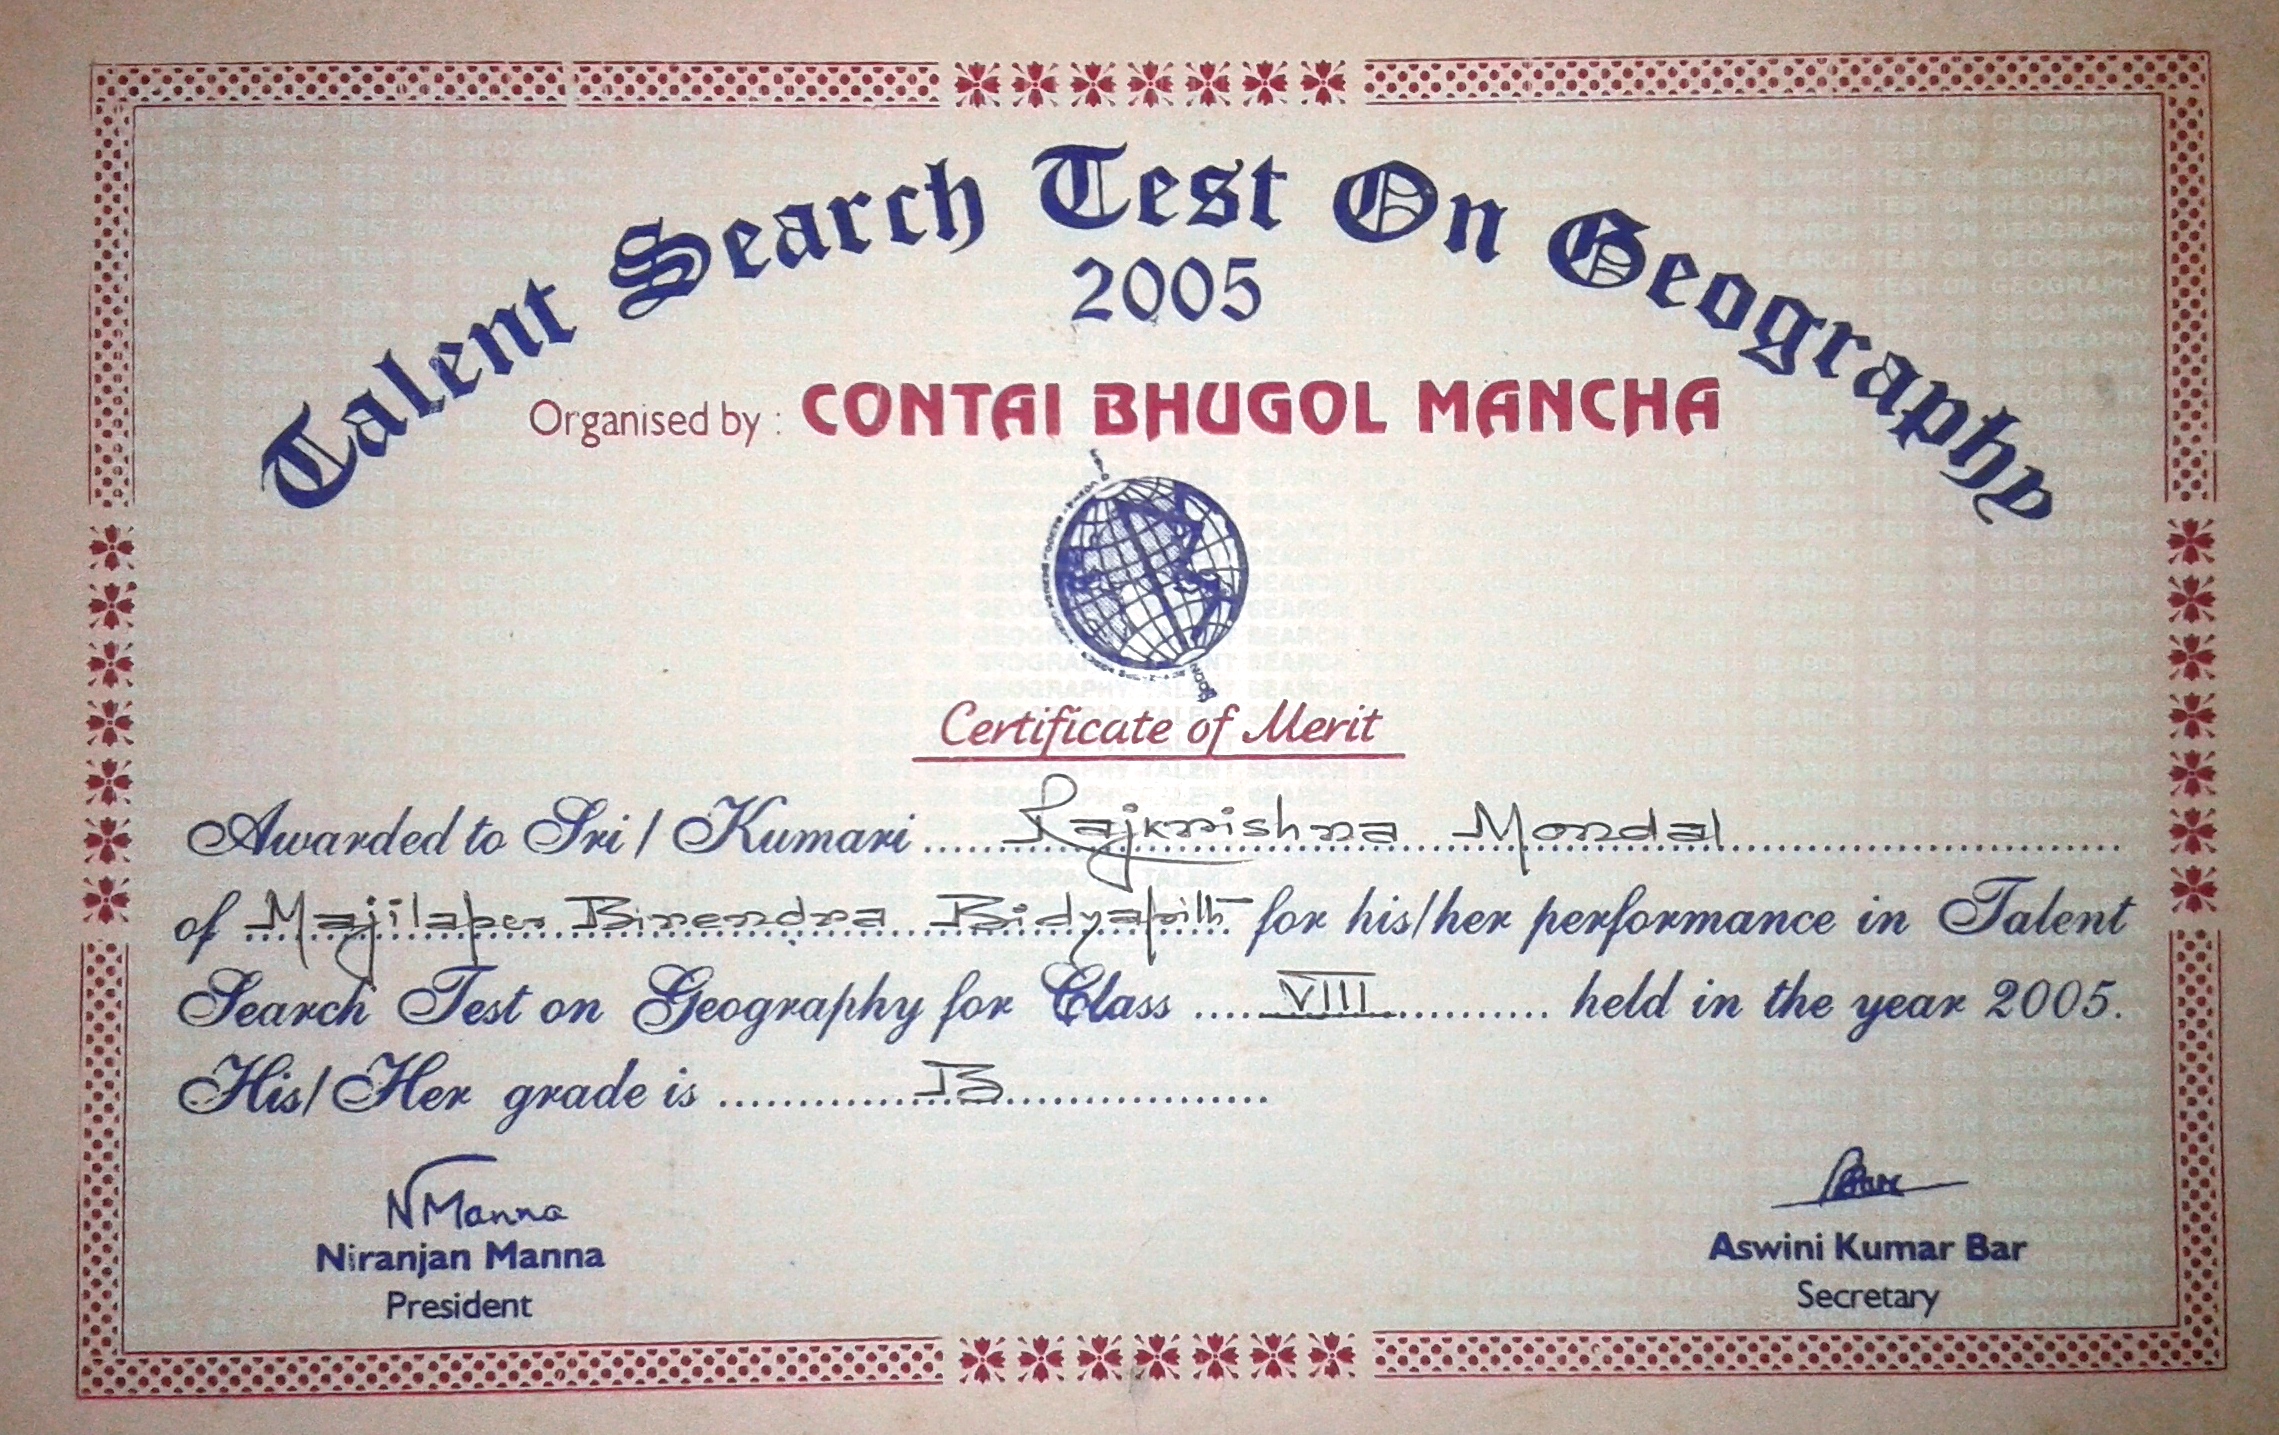 Talent Search Test On Geography
2005
Organised by : CONTAI BHUGOL MANCHA
Certificate of Merit
Awarded to Sri / Kumari Rajkrishna Mondal
of Majilapur Birendra Bidyapith for his/her performance in Talent
Search Test on Geography for Class VIII held in the year 2005.
His/Her grade is B
NManna
Niranjan Manna
President
Aswini Kumar Bar
Secretary